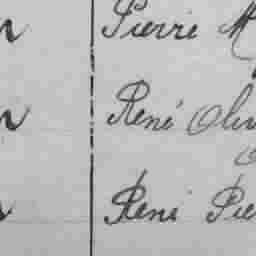 Pierre M
René Oliv
René Pie